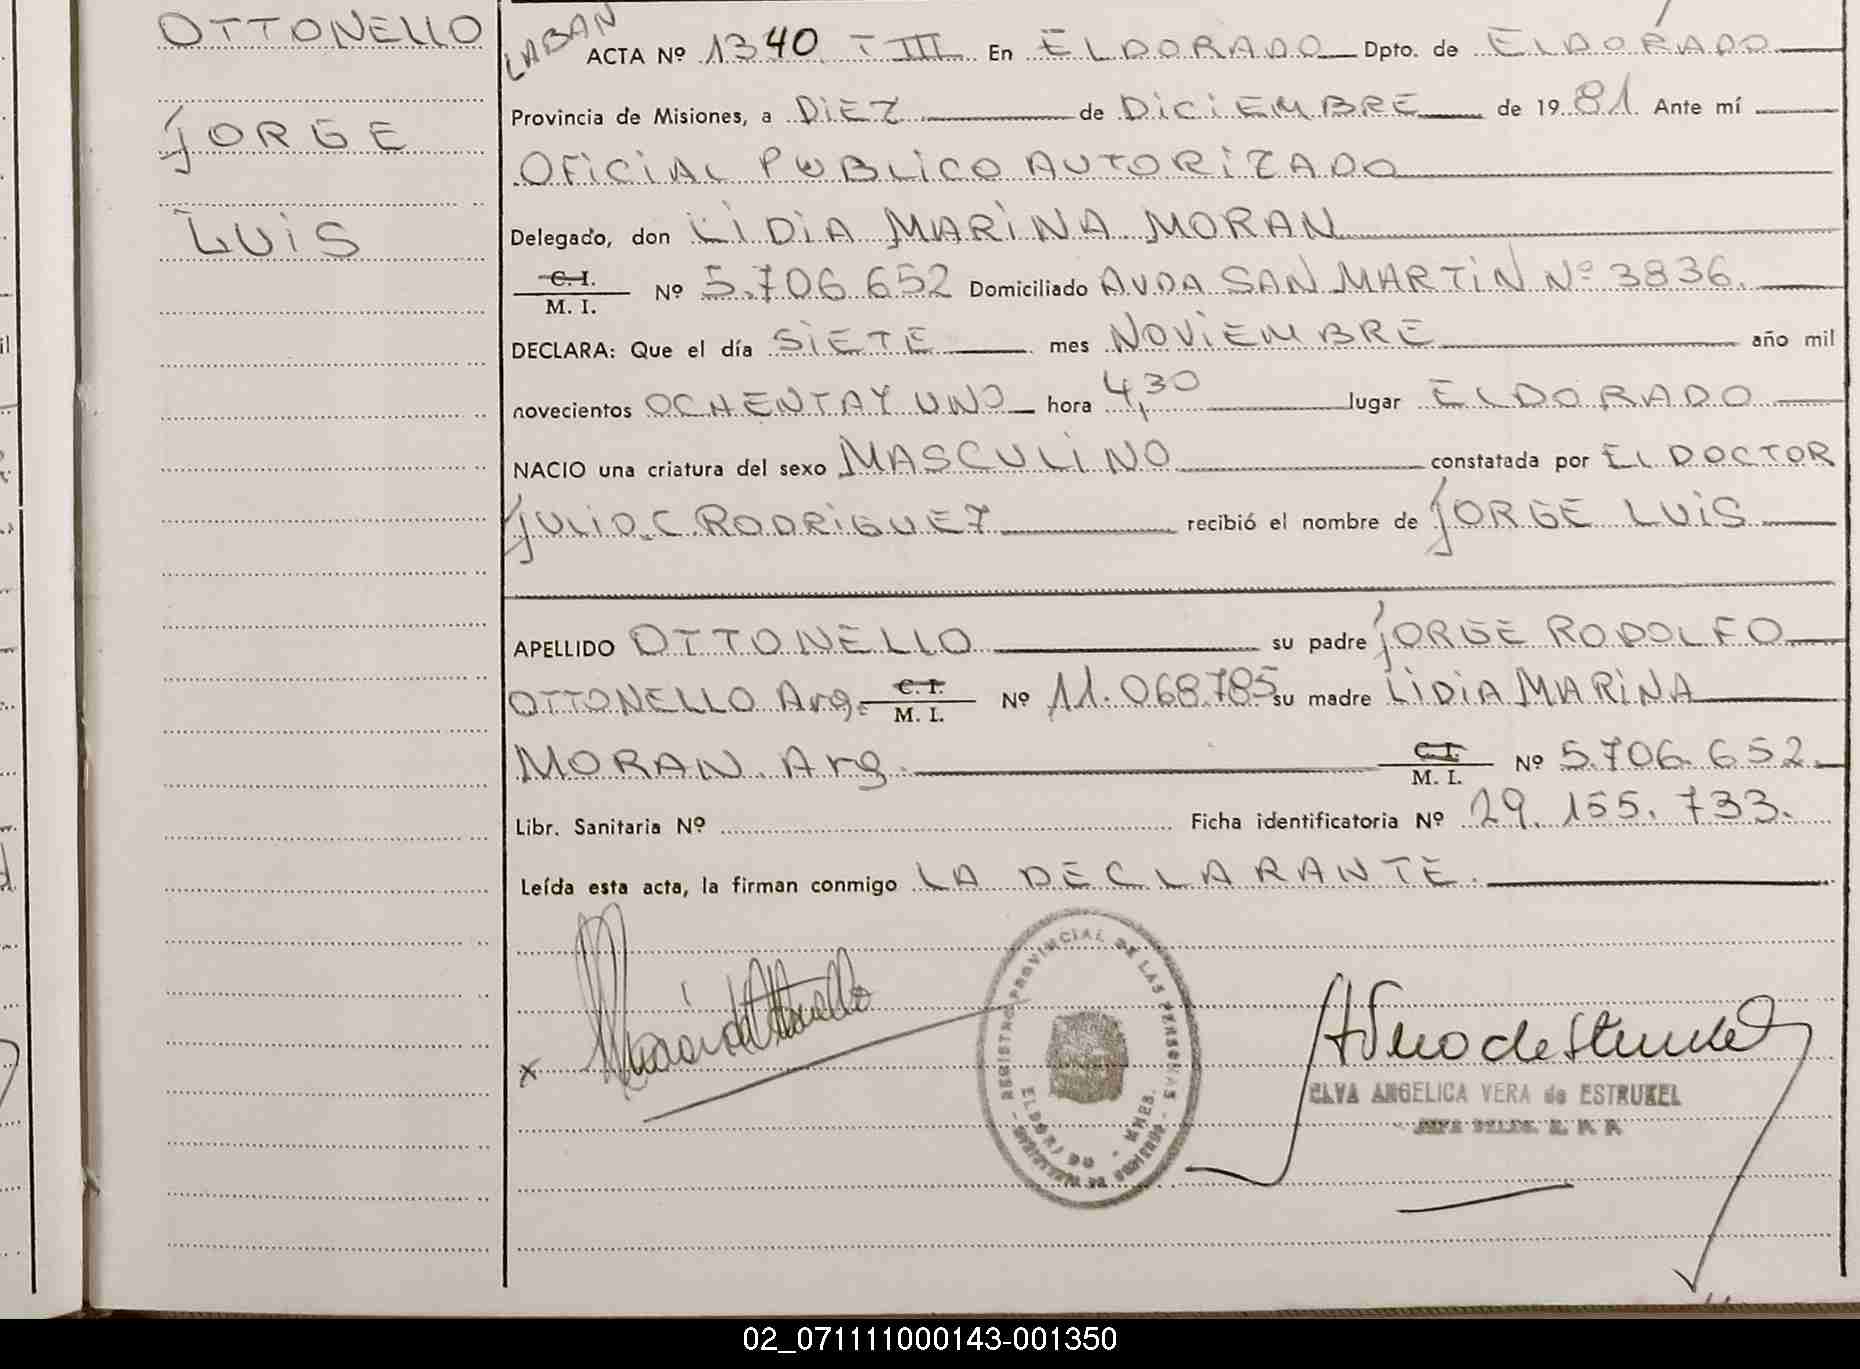 OTTONELLO
JORGE
LUIS
LABAN
ACTA Nº 1340 T III En ELDORADO Dpto. de ELDORADO
Provincia de Misiones, a DIEZ de DICIEMBRE de 1981. Ante mí
OFICIAL PUBLICO AUTORIZADO
Delegado, don LIDIA MARINA MORAN
C. I.
M. I. Nº 5.706.652 Domiciliado AVDA SAN MARTIN Nº 3836.
DECLARA: Que el día SIETE mes NOVIEMBRE año mil
novecientos OCHENTA Y UNO hora 4,30 lugar ELDORADO
NACIO una criatura del sexo MASCULINO constatada por EL DOCTOR
JULIO.C. RODRIGUEZ recibió el nombre de JORGE LUIS
APELLIDO OTTONELLO su padre JORGE RODOLFO
OTTONELLO Arg. C. I. M. I. Nº 11.068.785 su madre LIDIA MARINA
MORAN. Arg. C. I. M. I. Nº 5.706.652.
Libr. Sanitaria Nº Ficha identificatoria Nº 29.155.733.
Leída esta acta, la firman conmigo LA DECLARANTE.
REGISTRO PROVINCIAL DE LAS PERSONAS
ELDORADO - MNES.
x
ELVA ANGELICA VERA de ESTRUKEL
02_071111000143-001350